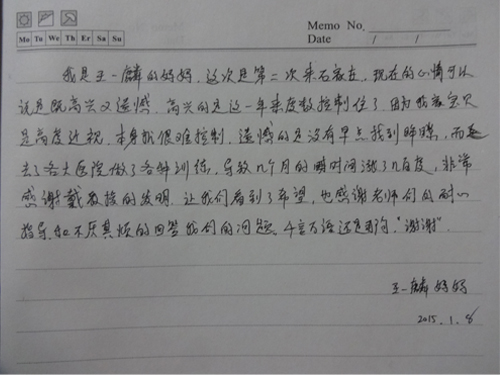 Memo No.
Mo Tu We Th Fr Sa Su
Date / /
我是王一麟的妈妈,这次是第二次来石家庄,现在的心情可以
说是既高兴又遗憾。高兴的是这一年来度数控制住了,因为我家宝贝
是高度近视,本身就很难控制,遗憾的是没有早点找到睛睛,而是
去了各大医院做了各种训练,导致几个月的瞬时间涨了几百度,非常
感谢戴教授的发明,让我们看到了希望,也感谢老师们的耐心
指导和不厌其烦的回答我们的问题,千言万语还是那句:“谢谢”.
王一麟妈妈
2015.1.8